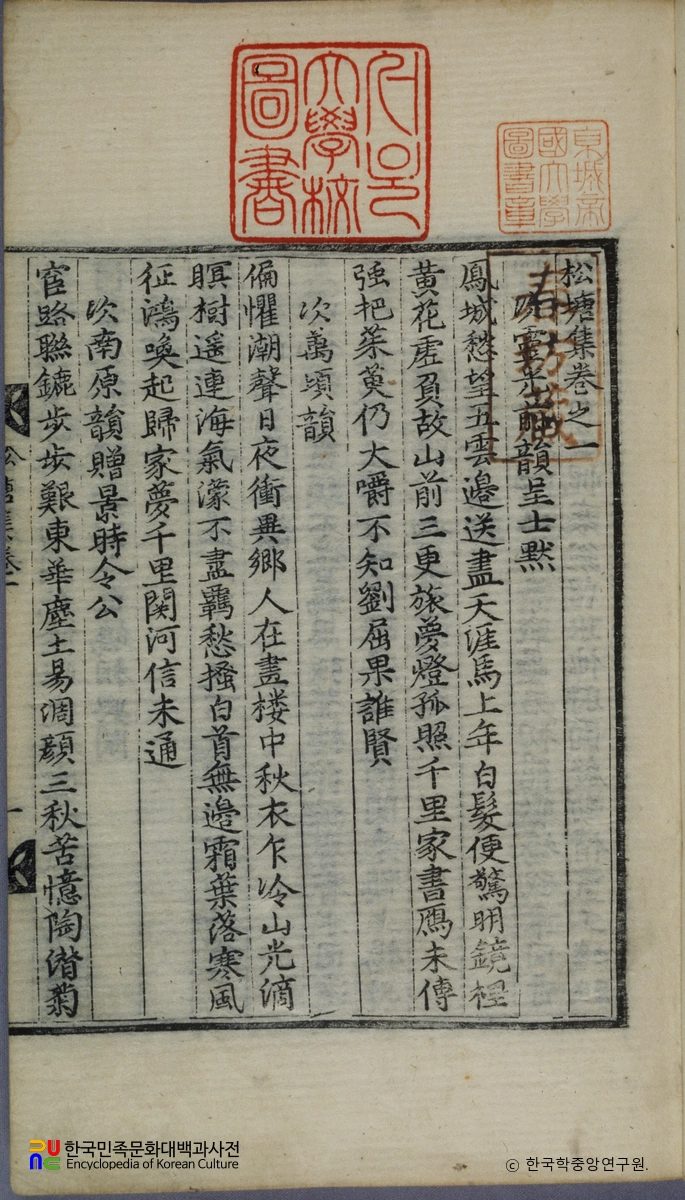 서울大學校圖書
京城帝國大學圖書章
松塘集卷之一
次靈光前韻呈士默
鳳城愁望五雲邊送盡天涯馬上年白髮便驚明鏡裡
黃花虛負故山前三更旅夢燈孤照千里家書鴈未傳
强把茱萸仍大嚼不知劉屈果誰賢
次萬頃韻
偏懼潮聲日夜衝異鄉人在畫楼中秋衣乍冷山光滴
暝樹遥連海氣濛不盡羈愁搔白首無邊霜葉落寒風
征鴻喚起歸家夢千里関河信未通
次南原韻贈景時令公
宦路聯鑣步步艱東華塵土易凋顔三秋苦憶陶潜菊
松塘集卷一
一
한국민족문화대백과사전
Encyclopedia of Korean Culture
ⓒ 한국학중앙연구원.